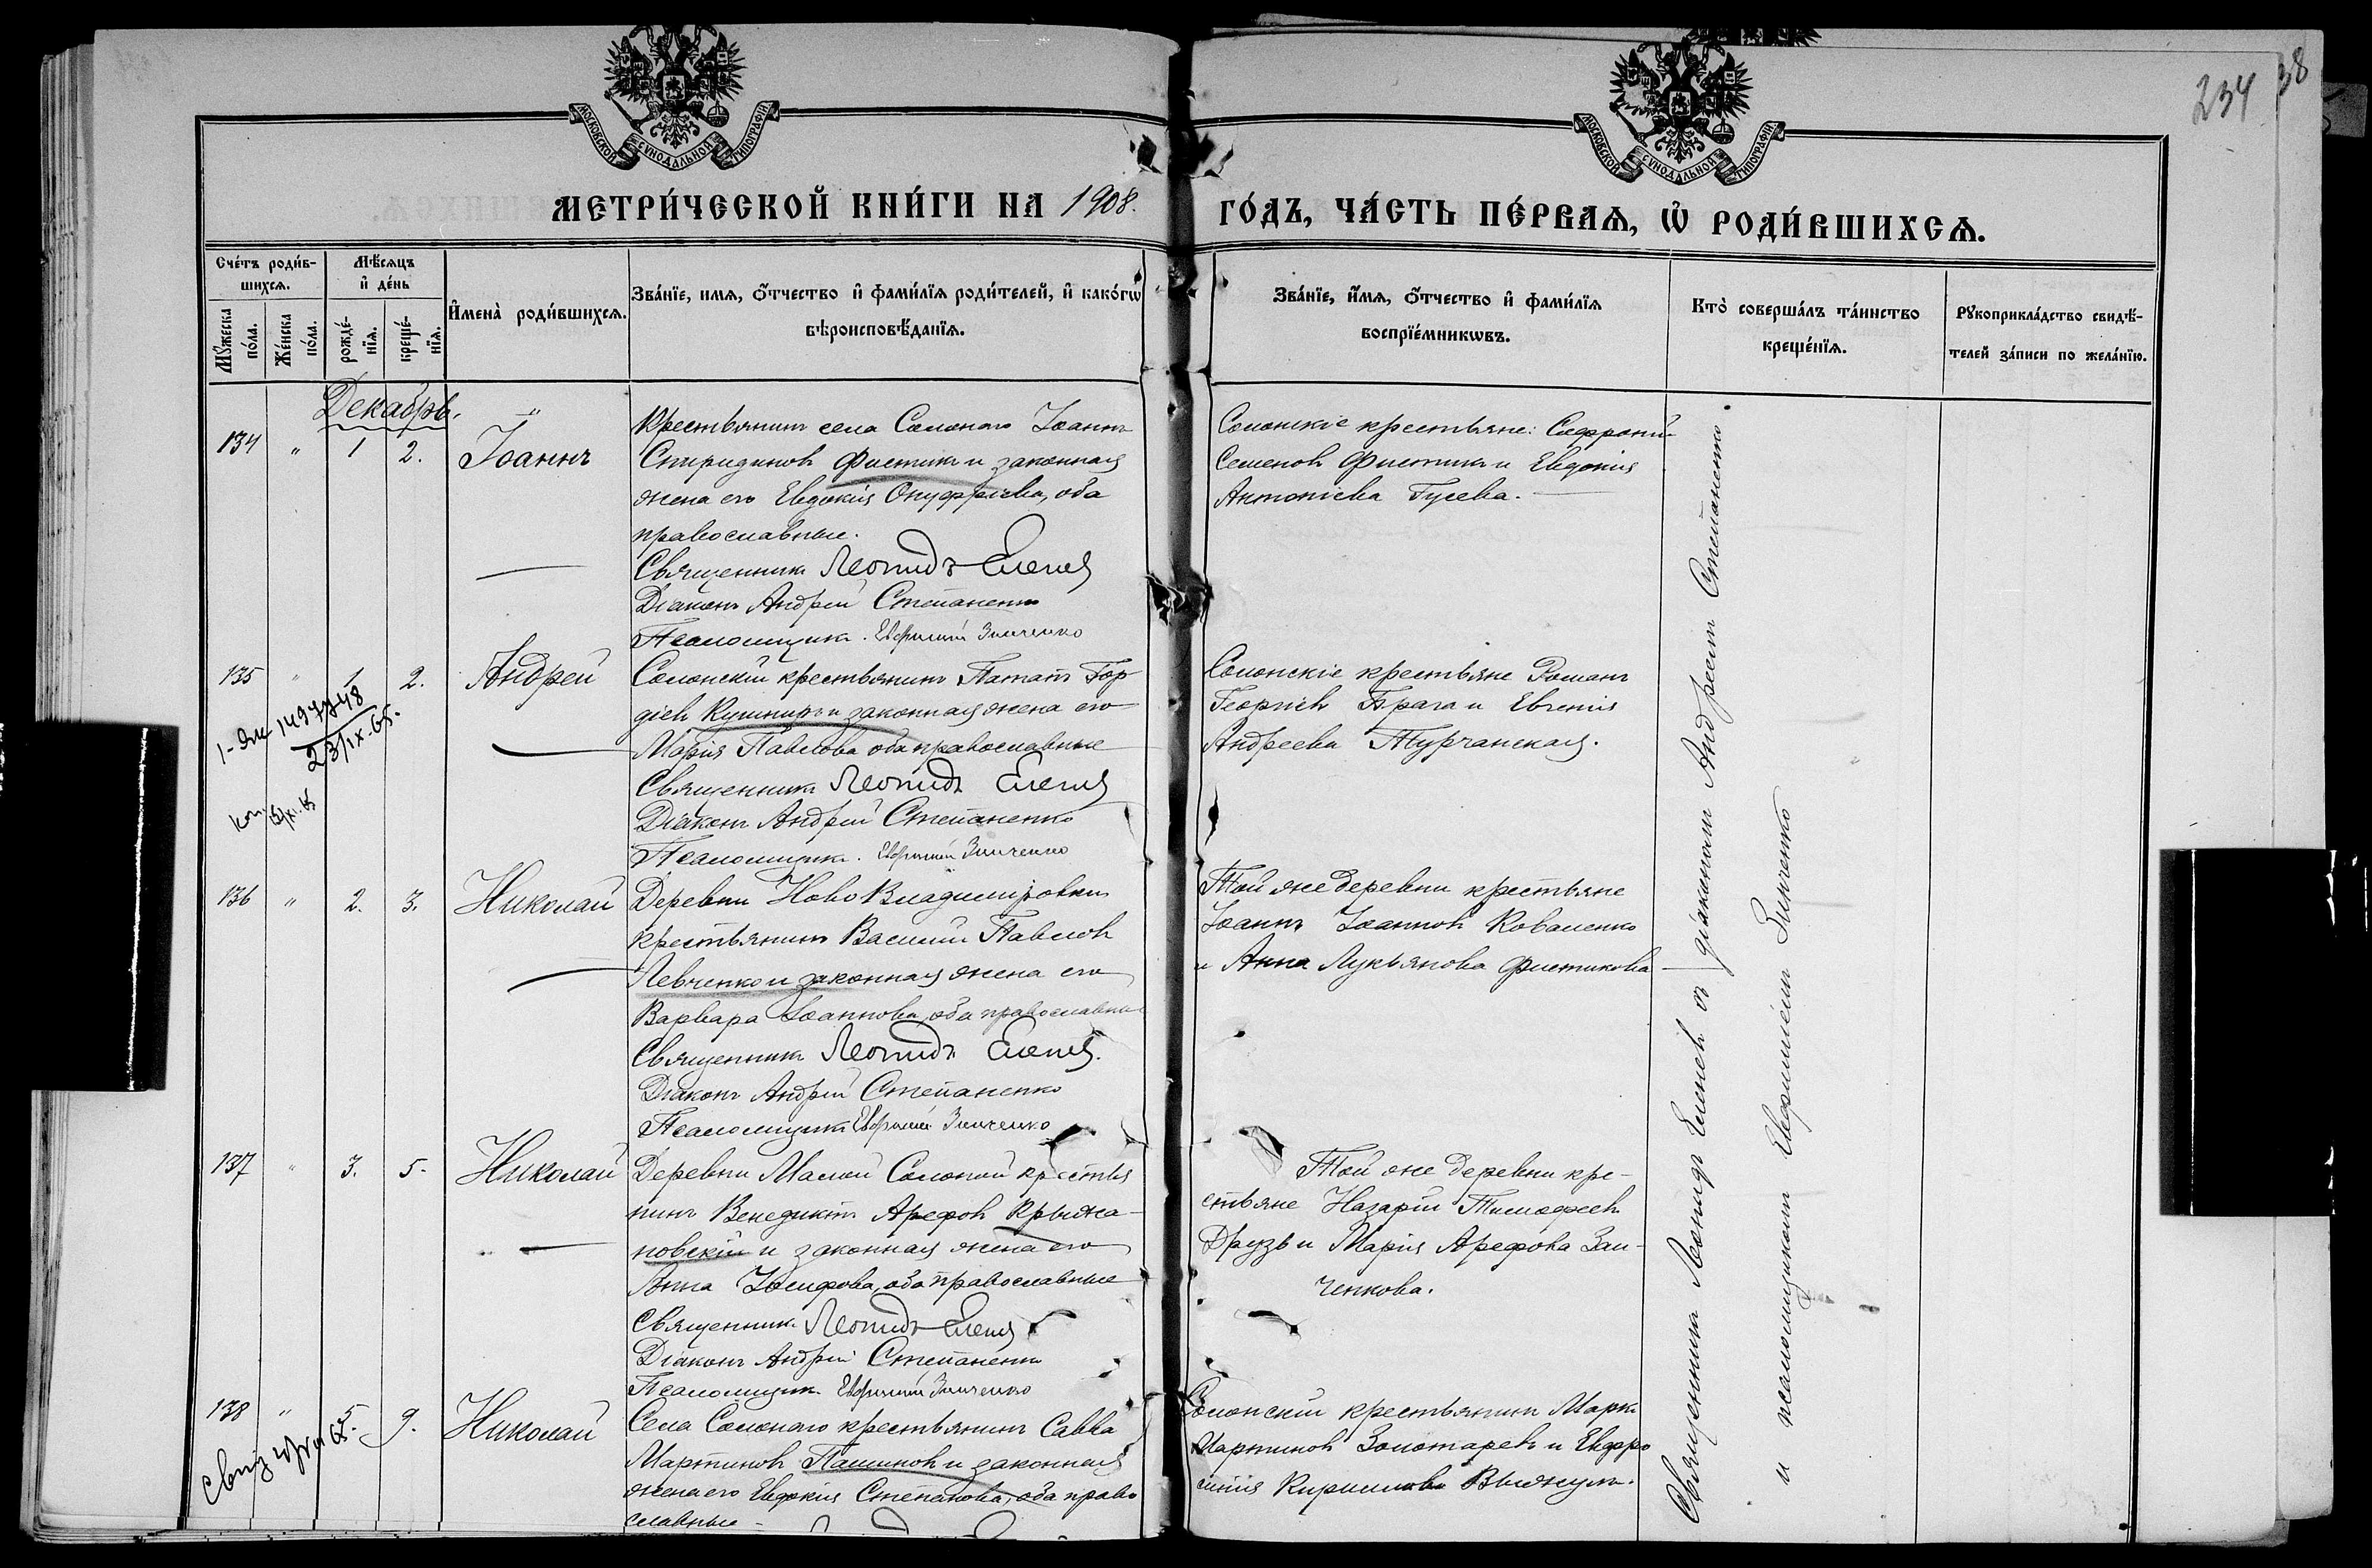 234
38
МОСКОВСКОЙ СѴНОДАЛЬНОЙ ТИПОГРАФІИ
МОСКОВСКОЙ СѴНОДАЛЬНОЙ ТИПОГРАФІИ
МЕТРИ́ЧЕСКОЙ КНИ́ГИ НА 1908.
ГО́ДЪ, ЧА́СТЬ ПЕ́РВАѦ, Ѡ҆ РОДИ́ВШИХСѦ.
Сче́тъ роди́в-
шихсѧ.
Мꙋ́жеска по́ла.
Же́нска по́ла.
Мѣ́сѧцъ
и҆ де́нь
рожде́-
нїѧ.
креще́-
нїѧ.
И҆мена̀ роди́вшихсѧ.
Зва́нїе, имѧ, ѻ҆́тчество и҆ фами́лїѧ роди́телей, и҆ како́гѡ
вѣроисповѣ́данїѧ.
Зва́нїе, и҆́мѧ, ѻ҆́тчество и҆ фами́лїѧ
воспрїе́мникѡвъ.
Кто̀ соверша́лъ та́инство
креще́нїѧ.
Рꙋкоприкла́дство свидѣ́-
телей за́писи по жела́нїю.
Декабрь.
134 " 1 2. Іоаннъ
Крестьянинъ села Солонаго Іоаннъ
Спиридоновъ Фистикъ и законная
жена его Евдокія Онуфріева, оба
православные.
Священникъ Леонидъ Еленев
Діаконъ Андрей Степаненко
Псаломщикъ Евфимій Зинченко
Солонскіе крестьяне: Софроній
Семеновъ Фистикъ и Евдокія
Антоніева Гусева.
135 " 1 2. Андрей
Солонскій крестьянинъ Потапъ Гор-
діевъ Кушниръ и законная жена его
Марія Павлова оба православные
Священникъ Леонидъ Еленев
Діаконъ Андрей Степаненко
Псаломщикъ Евфимій Зинченко
Солонскіе крестьяне Романъ
Георгіевъ Брага и Евгенія
Андреева Турчанская.
23/IX-65.
136 " 2. 3. Николай
Деревни Ново Владиміровки
крестьянинъ Василій Павловъ
Левченко и законная жена его
Варвара Іоаннова, оба православные
Священникъ Леонидъ Еленев
Діаконъ Андрей Степаненко
Псаломщикъ Евфимій Зинченко
Той же деревни крестьяне
Іоаннъ Іоанновъ Коваленко
и Анна Лукьянова Фистикова
137 " 3. 5. Николай
Деревни Малой Солоной крестья
нинъ Венедиктъ Арефовъ Крыжа-
новскій и законная жена его
Анна Іосифова, оба православные
Священникъ Леонидъ Еленев
Діаконъ Андрей Степаненко
Псаломщикъ Евфимій Зинченко
Той же деревни кре-
стьяне Назарій Тимофеевъ
Друзь и Марія Арефова Зин-
ченкова.
138 " 5. 9. Николай
Села Солонаго крестьянинъ Савва
Мартиновъ Пашиновъ и законная
жена его Евдокія Степанова, оба право
славные
Солонскій крестьянинъ Маркъ
Мартиновъ Золотаревъ и Евфро
синія Кириллова
Священникъ Леонидъ Еленевъ съ діакономъ Андреемъ Степаненко
и псаломщикомъ Евфиміемъ Зинченко